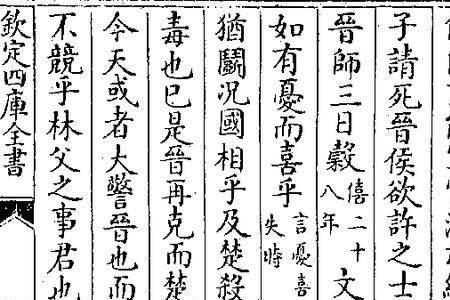 子請死晉侯欲許之士
晉師三日穀僖二十八年文
如有憂而喜乎言憂喜失時
猶鬭況國相乎及楚殺
毒也巳是晉再克而楚
今天或者大警晉也而
不競乎林父之事君也
欽定四庫全書